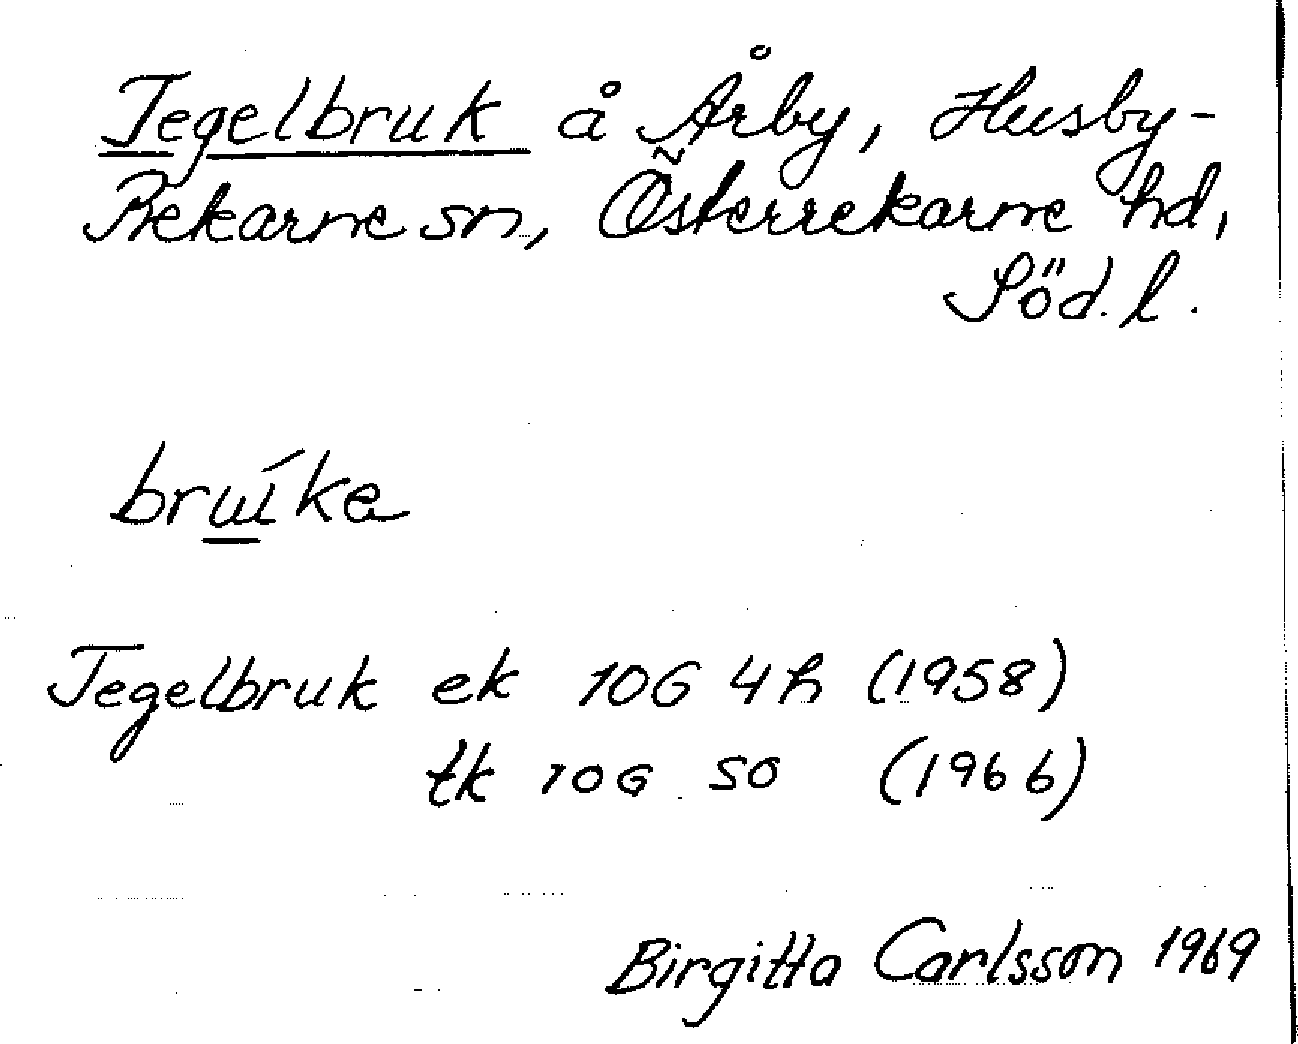 Tegelbruk å Årby, Husby-
Rekarne sn, Österrekarne hd,
Söd. l.
bruíka
Tegelbruk ek 10G 4h (1958)
tk 10G SO (1966)
Birgitta Carlsson 1969